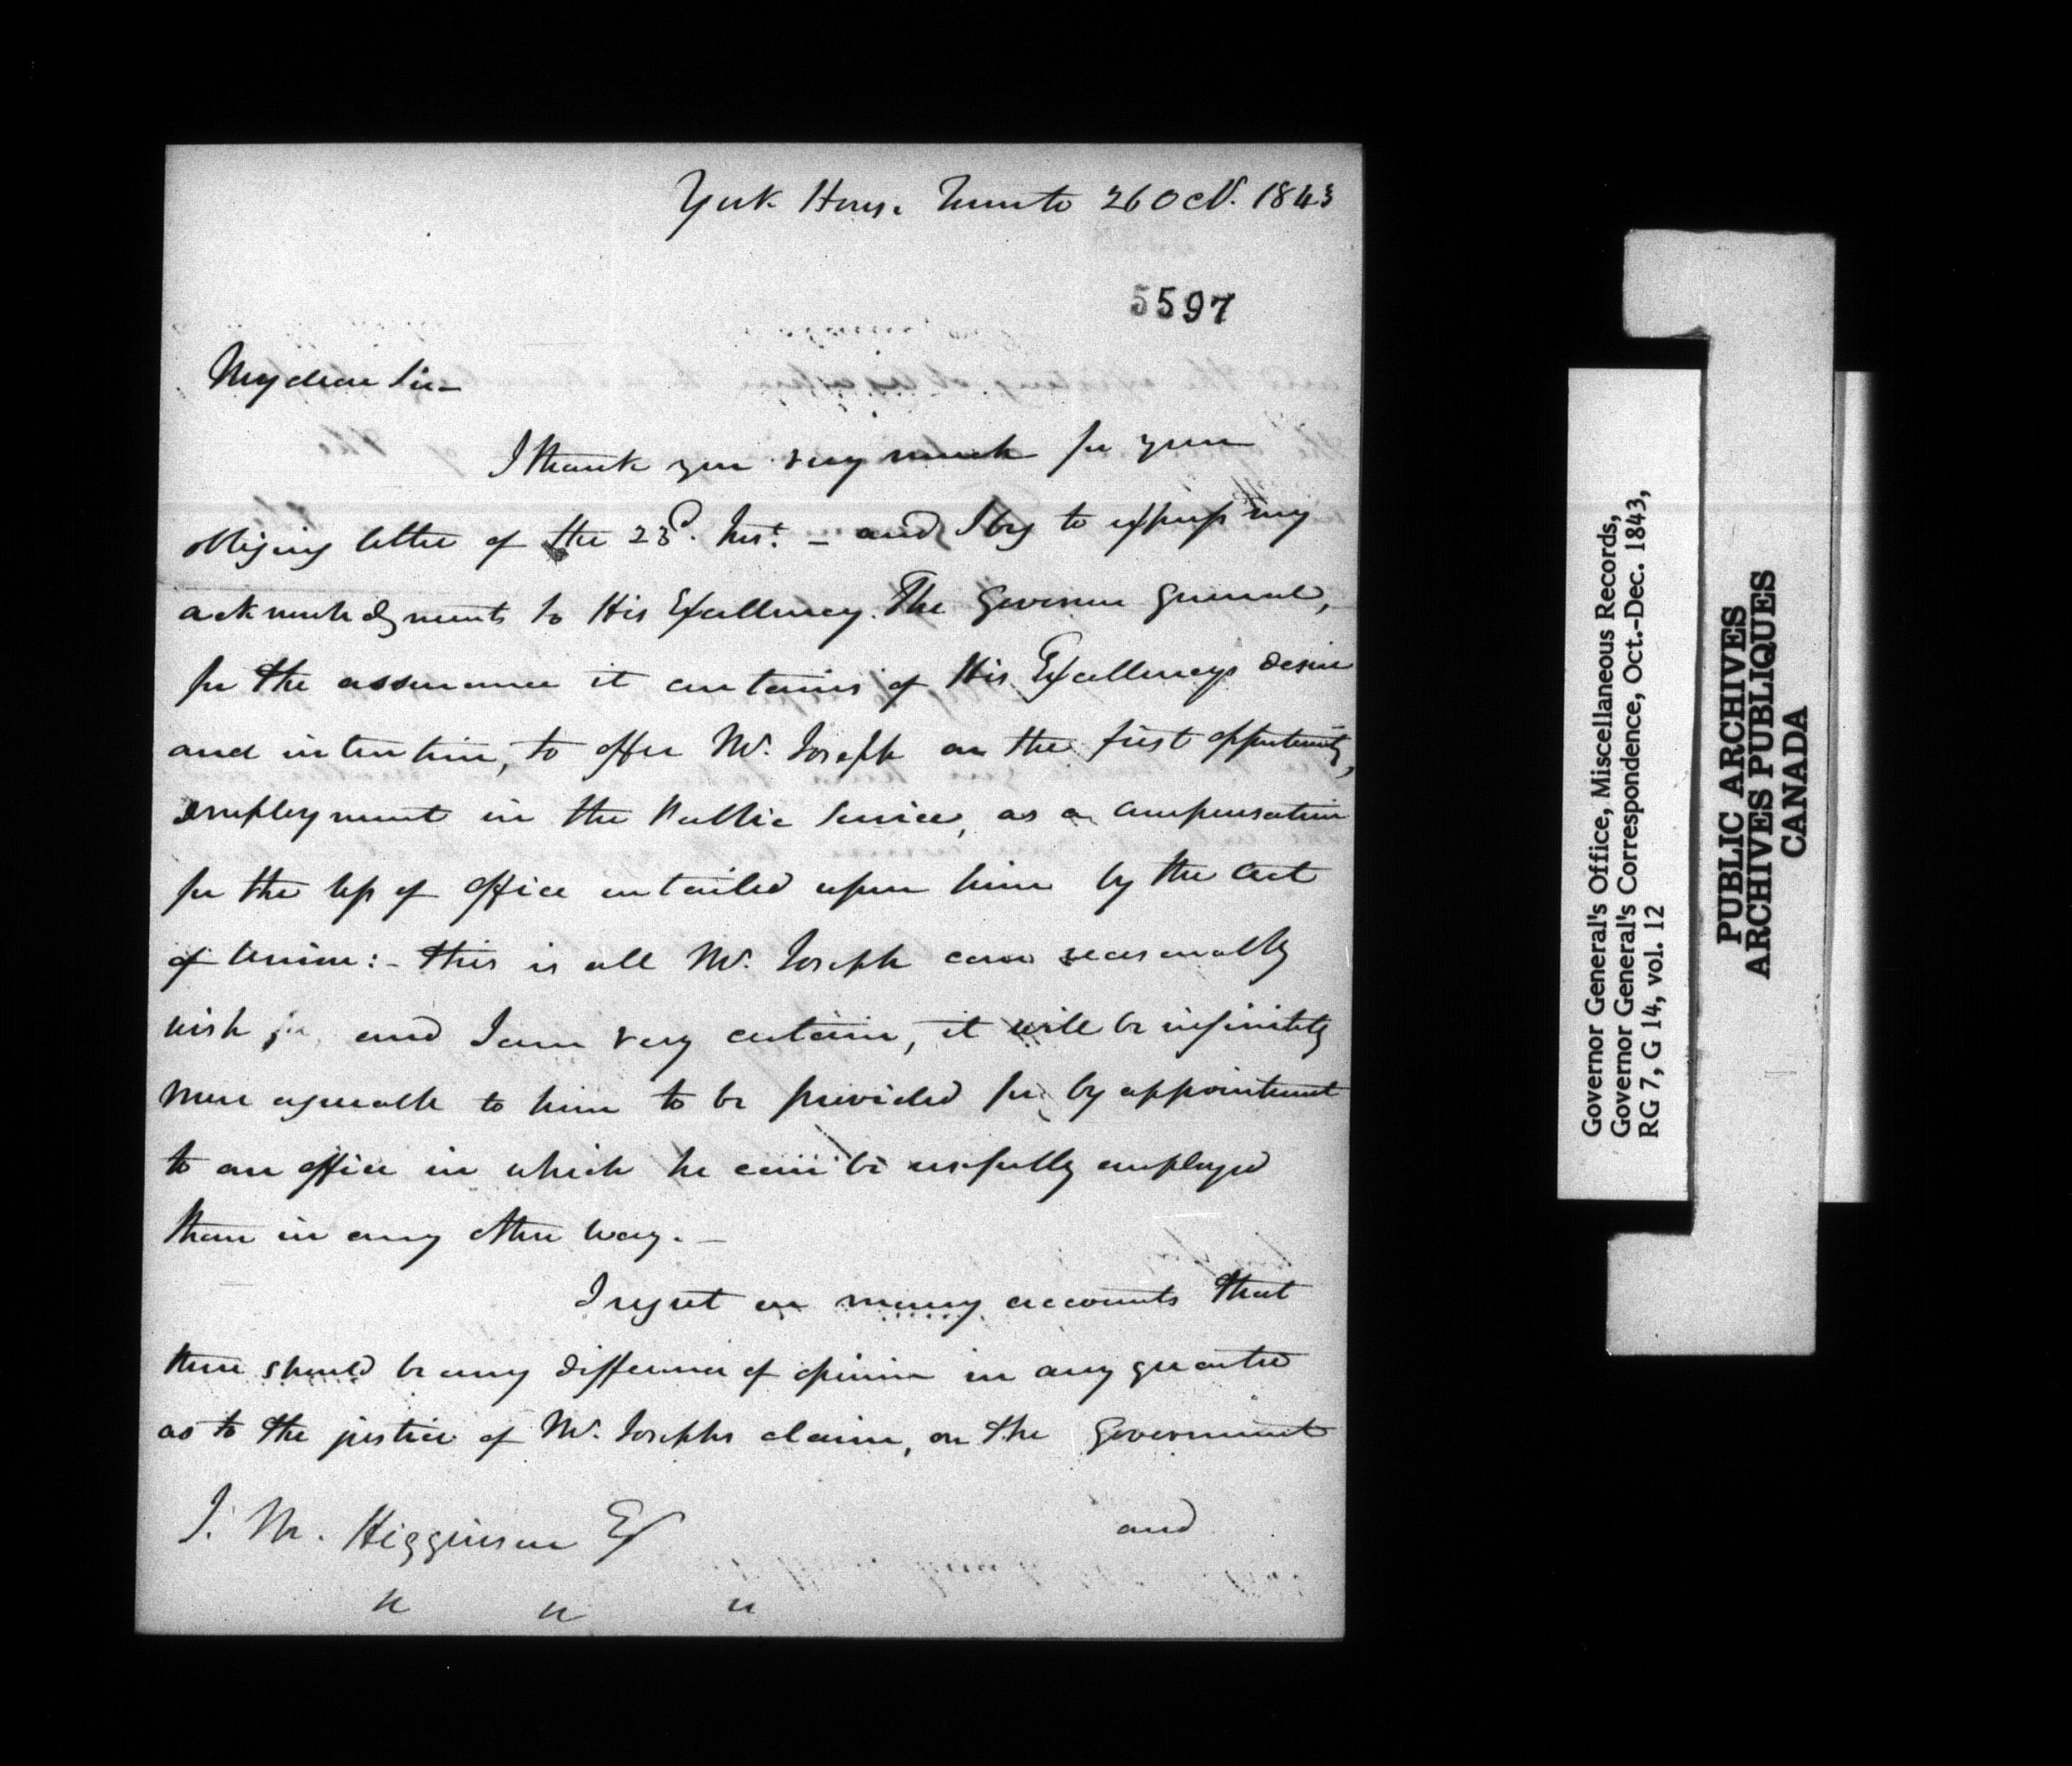 York House Toronto 26 Oct. 1843
5597
My dear Sir
I thank you very much for your
obliging letter of the 23d. Inst. – and I beg to express my
acknowledgments to His Excellency The Governor General,
for the assurance it contains of His Excellencys desire
and intention, to offer Mr. Joseph on the first opportunity,
employment in the Public Service, as a compensation
for the loss of office entailed upon him by the Act
of Union: – this is all Mr. Joseph can reasonably
wish for and I am very certain, it will be infinitely
more agreeable to him to be provided for by appointment
to an office in which he can be usefully employed
than in any other way. –
I regret on many accounts that
there should be any difference of opinion in any quarter
as to the justice of Mr. Josephs claim, on the Government
J. M. Higginson Esq
and
" " "
Governor General's Office, Miscellaneous Records,
Governor General's Correspondence, Oct.-Dec. 1843,
RG 7, G 14, vol. 12
PUBLIC ARCHIVES
ARCHIVES PUBLIQUES
CANADA